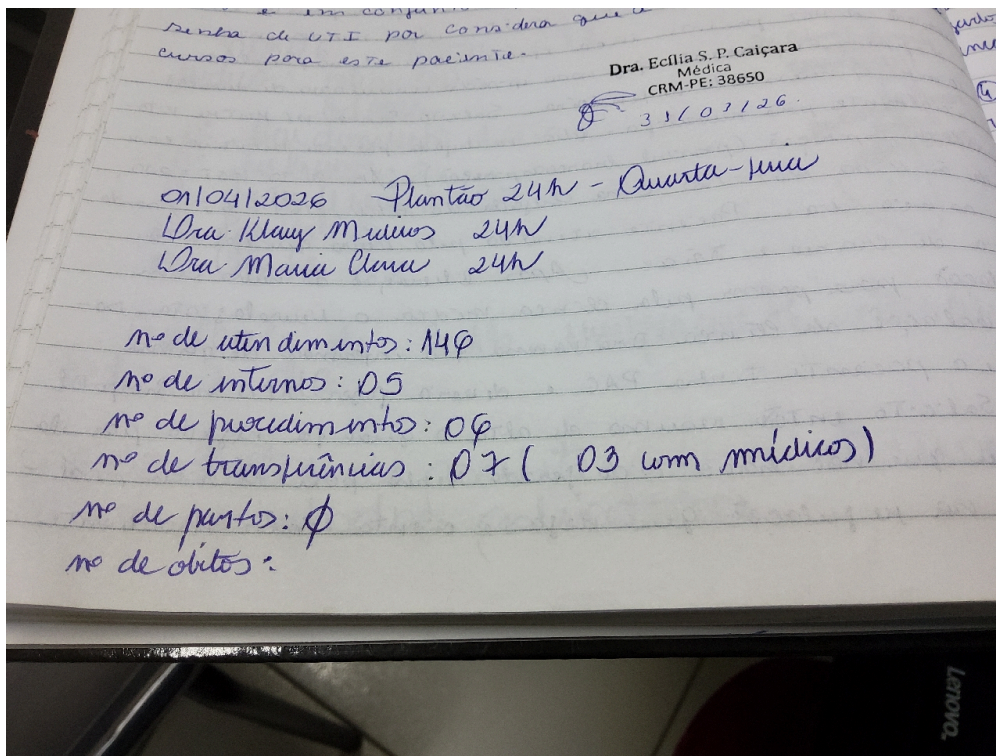 e em conjun
senha de UTI por considera que
cursos para este paciente.
Dra. Ecília S. P. Caiçara
Médica
CRM-PE: 38650
31/03/26.
01/04/2026 Plantão 24h - Quarta-feira
Dra. Klauy Medeiros 24h
Dra Maria Clara 24h
nº de atendimentos: 146
nº de internos: 05
nº de procedimentos: 06
nº de transferências: 07 ( 03 com médicos)
nº de partos: ϕ
nº de óbitos:
Lenovo